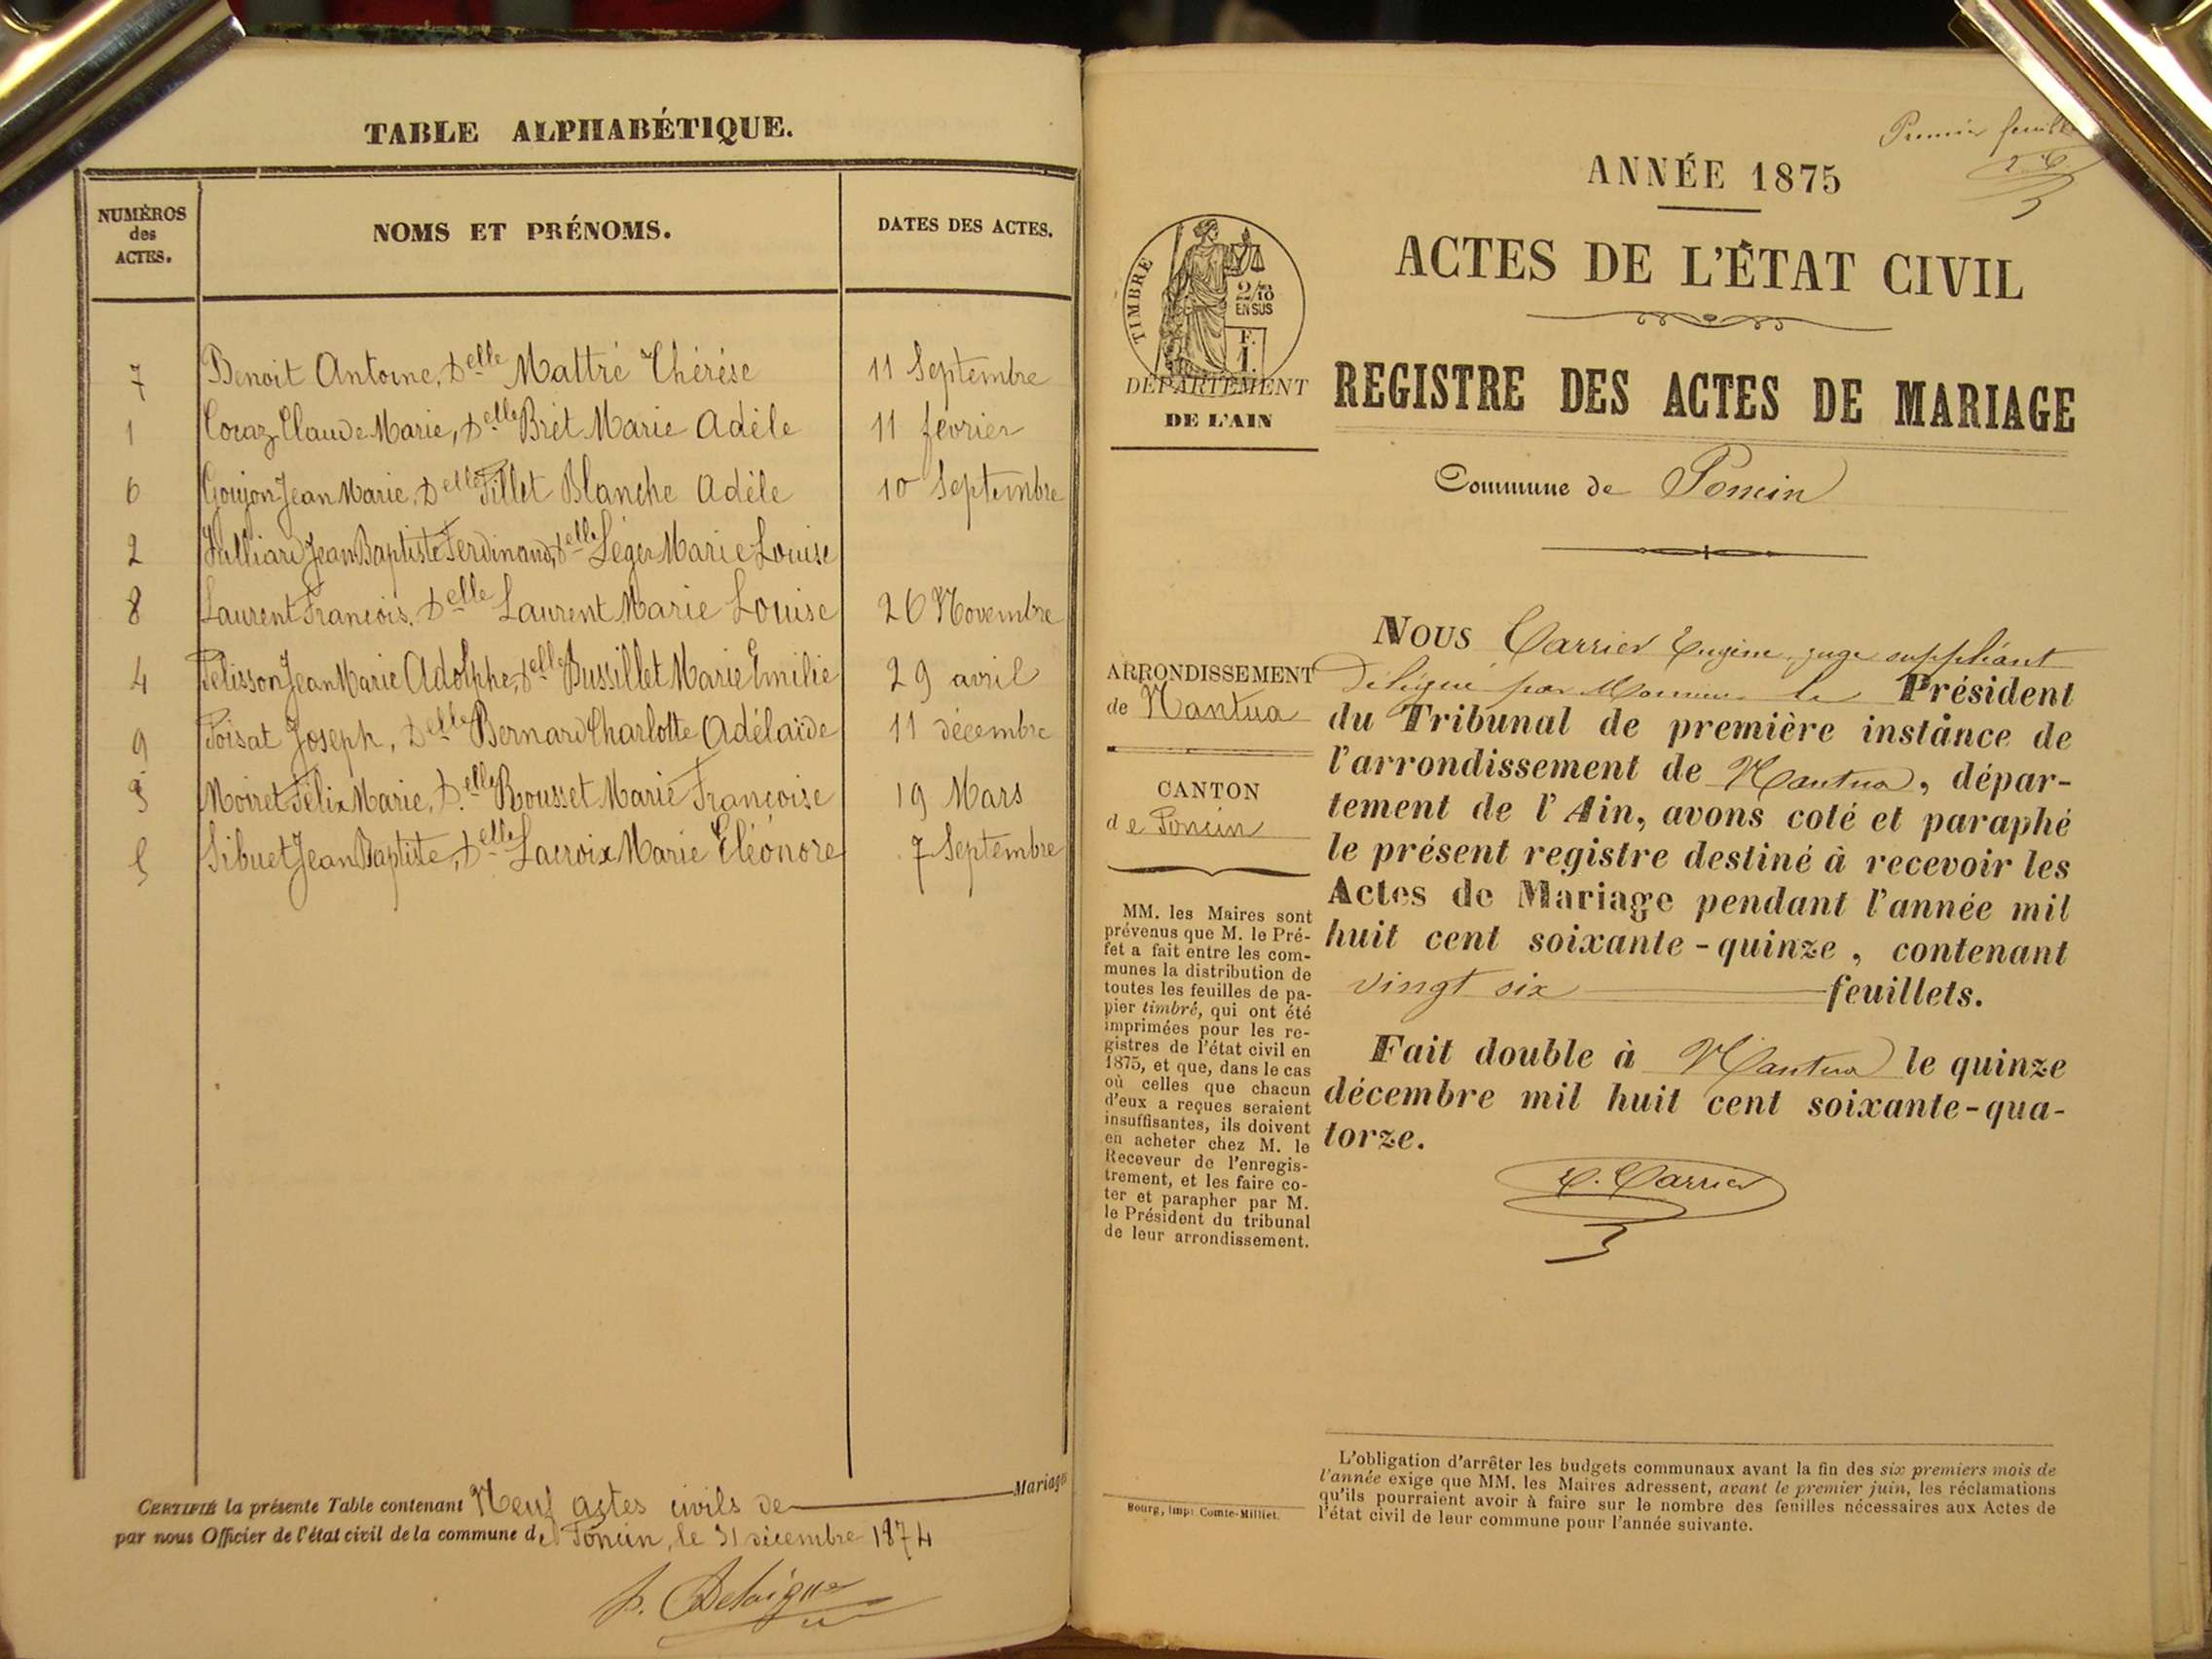 TABLE ALPHABÉTIQUE.
NUMÉROS des ACTES.
NOMS ET PRÉNOMS.
DATES DES ACTES.
7 Benoit Antoine, Delle Mattré Thérése 11 Septembre
1 Cocaz Claude Marie, Delle Brét Marie Adéle 11 février
6 Goujon Jean Marie, Delle Fillet Blanche Adéle 10 Septembre
2 Julliard Jean Baptiste Ferdinand, Delle Léger Marie Louise
8 Laurent François, Delle Laurent Marie Louise 26 Novembre
4 Pelisson Jean Marie Adolphe, Delle Bussillet Marie Emilie 29 avril
9 Poisat Joseph, Delle Bernard Charlotte Adélaïde 11 décembre
3 Moiret Félix Marie, Delle Rousset Marie Françoise 19 Mars
5 Sibuet Jean Baptiste, Delle Lacroix Marie Eléonore 7 Septembre
CERTIFIÉ la présente Table contenant Neuf actes civils de Mariage
par nous Officier de l'état civil de la commune de Poncin, le 31 décembre 1874
Premier feuillet
ANNÉE 1875
ACTES DE L'ÉTAT CIVIL
TIMBRE
2/10
EN SUS
F.
1.
DÉPARTEMENT
DE L'AIN
REGISTRE DES ACTES DE MARIAGE
Commune de Poncin
ARRONDISSEMENT
de Nantua
CANTON
de Poncin
MM. les Maires sont
prévenus que M. le Pré-
fet a fait entre les com-
munes la distribution de
toutes les feuilles de pa-
pier timbré, qui ont été
imprimées pour les re-
gistres de l'état civil en
1875, et que, dans le cas
où celles que chacun
d'eux a reçues seraient
insuffisantes, ils doivent
en acheter chez M. le
Receveur de l'enregis-
trement, et les faire co-
ter et parapher par M.
le Président du tribunal
de leur arrondissement.
Bourg, imp: Comte-Milliet.
NOUS Carrier Eugène, juge suppléant
Délégué par Monsieur le Président
du Tribunal de première instance de
l'arrondissement de Nantua, dépar-
tement de l'Ain, avons coté et paraphé
le présent registre destiné à recevoir les
Actes de Mariage pendant l'année mil
huit cent soixante-quinze, contenant
vingt six feuillets.
Fait double à Nantua le quinze
décembre mil huit cent soixante-qua-
torze.
E. Carrier
L'obligation d'arrêter les budgets communaux avant la fin des six premiers mois de
l'année exige que MM. les Maires adressent, avant le premier juin, les réclamations
qu'ils pourraient avoir à faire sur le nombre des feuilles nécessaires aux Actes de
l'état civil de leur commune pour l'année suivante.